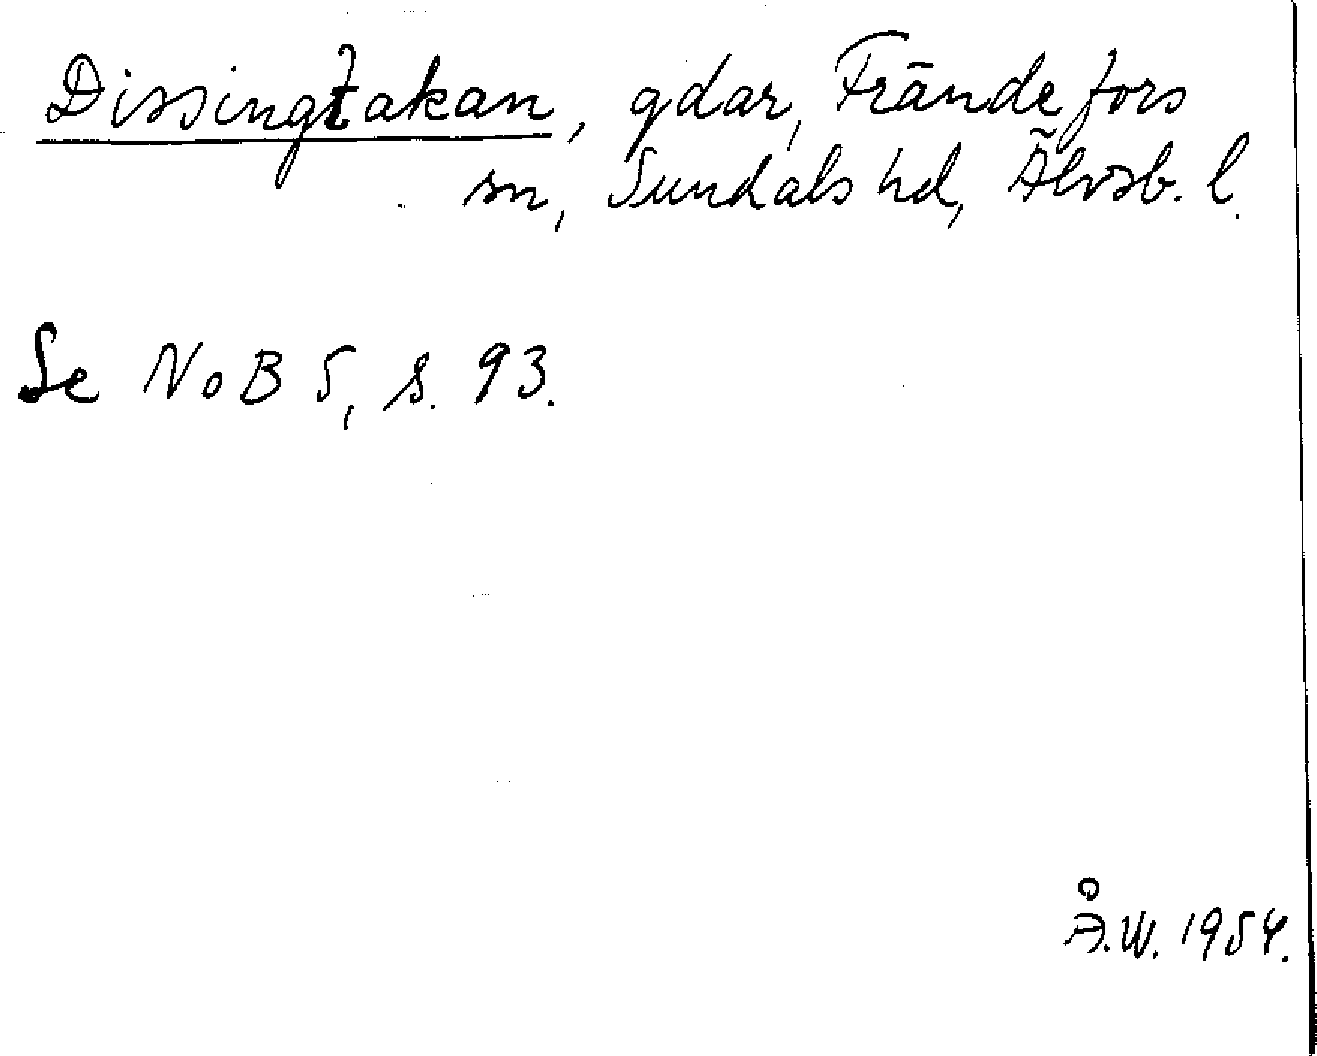 Dissingtakan, gdar, Frändefors
sn, Sundals hd, Älvsb. l.
Se NoB 5, s. 93.
Å.W. 1954.